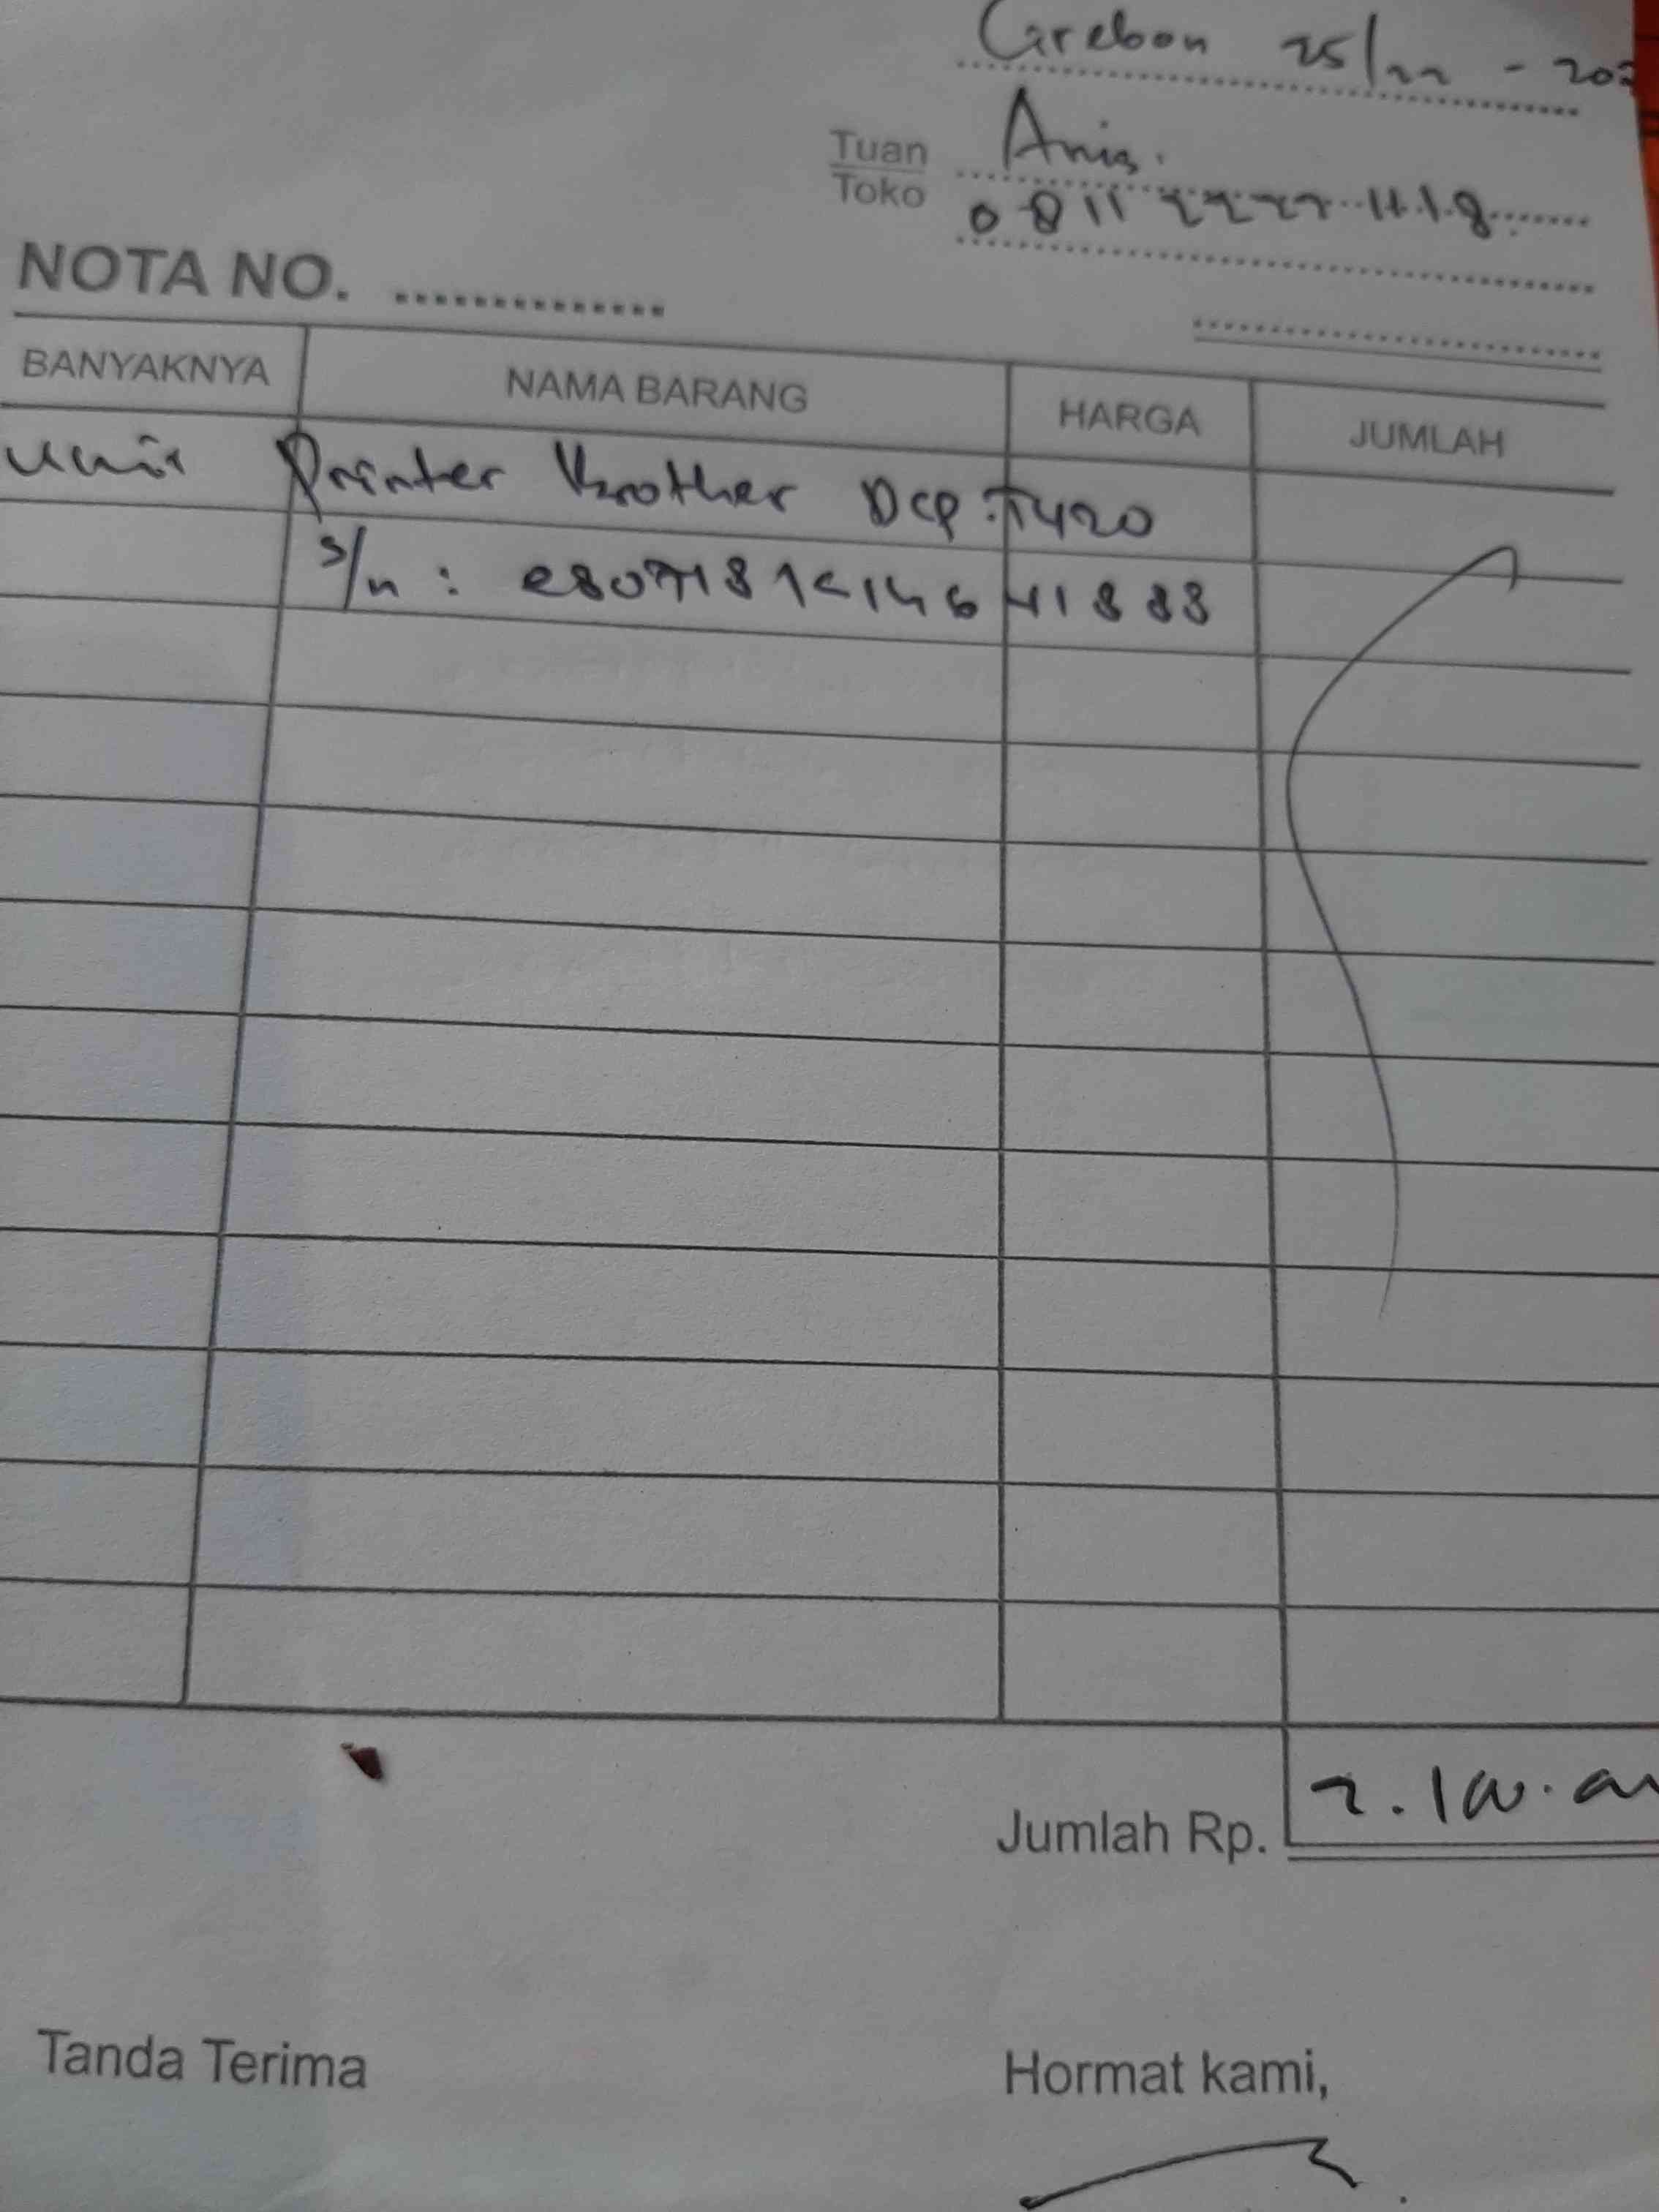 Cirebon 25/22 - 202
Tuan Anis.
Toko 0811 2222 1118
NOTA NO. ...............
BANYAKNYA NAMA BARANG HARGA JUMLAH
unit Printer Brother DCP-T420
S/n :
Jumlah Rp. 2.100.00
Tanda Terima Hormat kami,